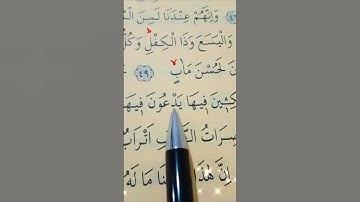 وَاِنَّهُمْ عِنْدَنَا لَمِنَ
وَالْيَسَعَ وَذَا الْكِفْلِ وَكُلٌّ
لَحُسْنَ مَاٰبٍ ﴿٤٩﴾
كِـٔينَ فٖيهَا يَدْعُونَ فٖيهَا
صِرَاتُ اَتْرَابٌ
اِنَّ هٰذَا مَا لَهُ